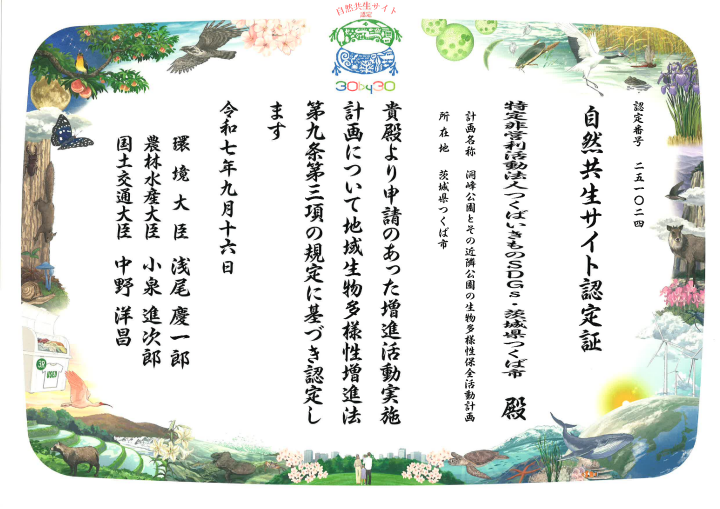 自然共生サイト
認定
30by30
認定番号 二五一〇二四
自然共生サイト認定証
特定非営利活動法人つくばいきものSDGs・茨城県つくば市 殿
計画名称 洞峰公園とその近隣公園の生物多様性保全活動計画
所在地 茨城県つくば市
貴殿より申請のあった増進活動実施
計画について地域生物多様性増進法
第九条第三項の規定に基づき認定し
ます
令和七年九月十六日
環境大臣 浅尾慶一郎
農林水産大臣 小泉進次郎
国土交通大臣 中野洋昌